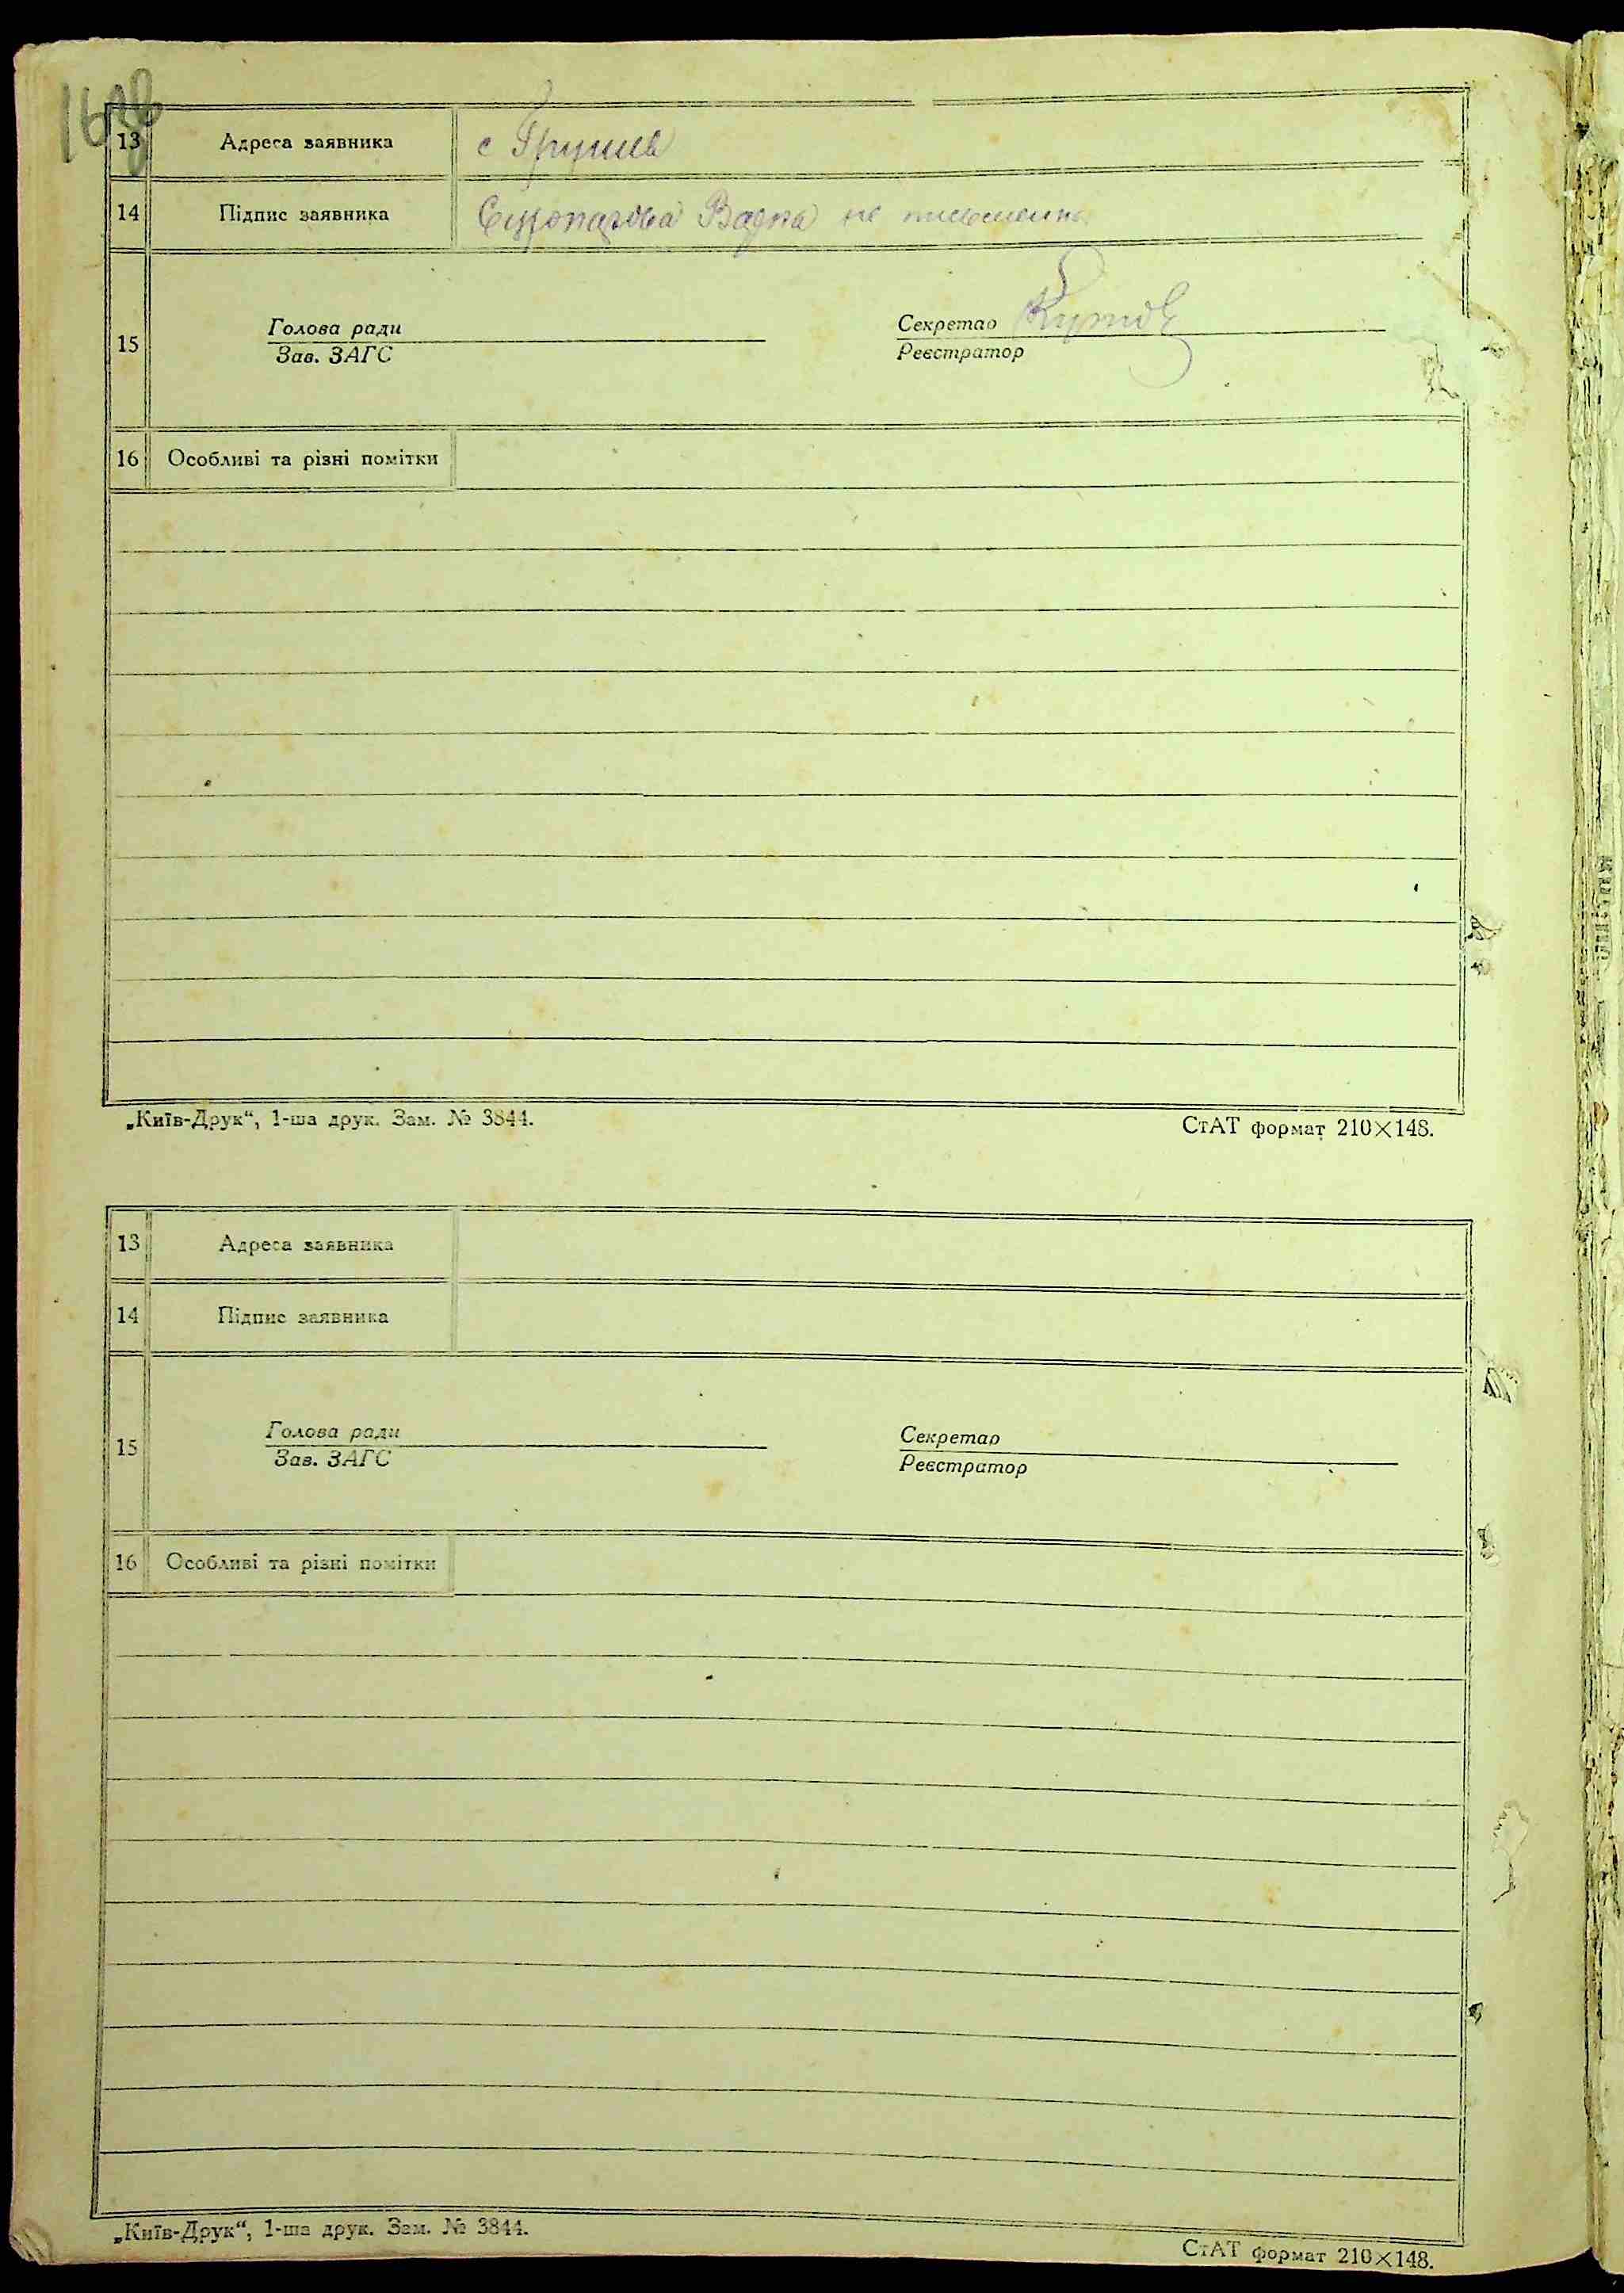 13 Адреса заявника с Грушев
14 Підпис заявника не письменна
15 Голова ради Секретар
Зав. ЗАГС Реєстратор
16 Особливі та різні помітки
„Київ-Друк“, 1-ша друк. Зам. № 3844. СтАТ формат 210×148.
13 Адреса заявника
14 Підпис заявника
15 Голова ради Секретар
Зав. ЗАГС Реєстратор
16 Особливі та різні помітки
„Київ-Друк“, 1-ша друк. Зам. № 3844. СтАТ формат 210×148.